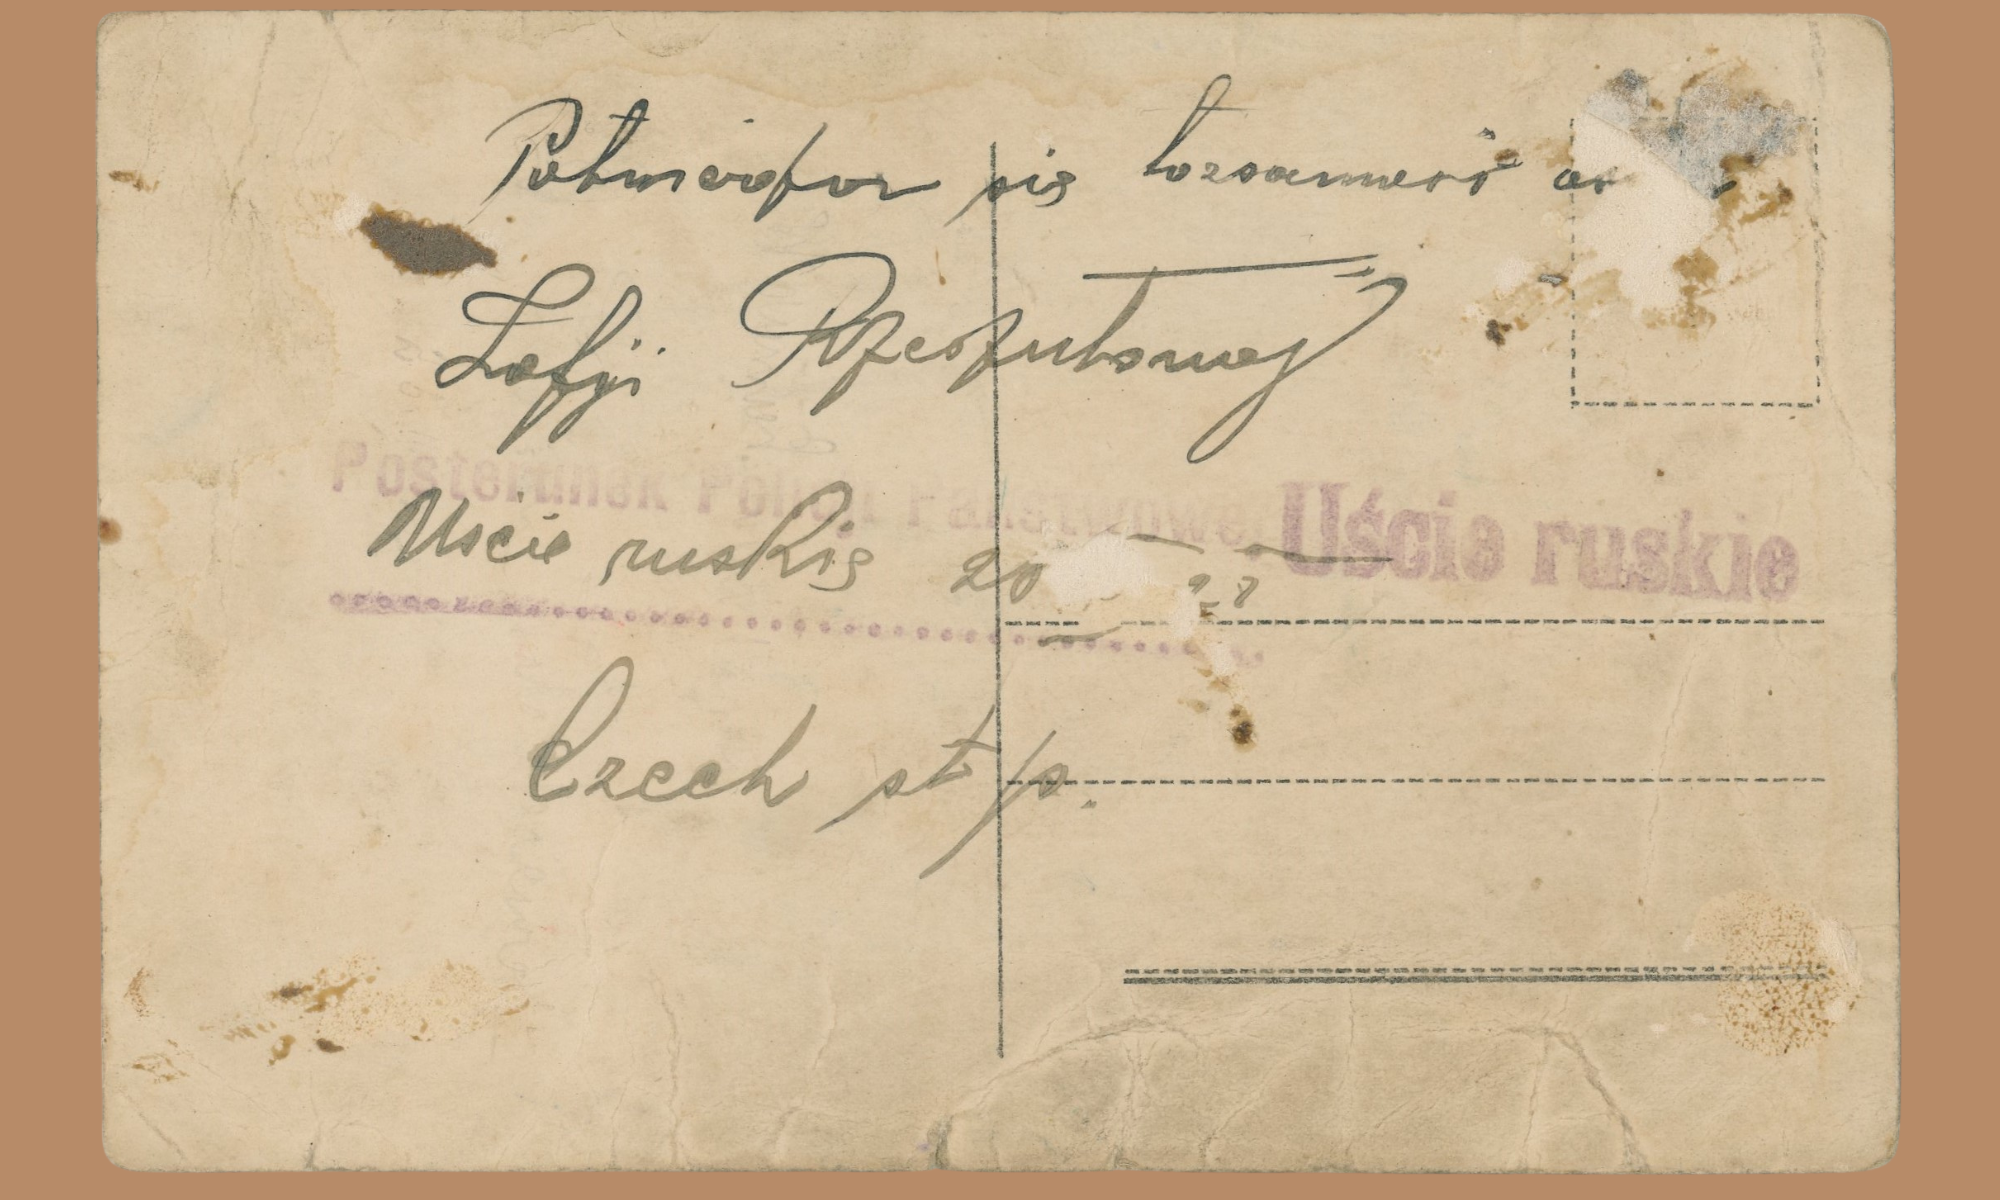 Potwierdza się tożsamość os
Zofji Rzeszutowej
Posterunek Policji Państwowej Uście ruskie
Uście ruskie 20 28
Czech st/p.